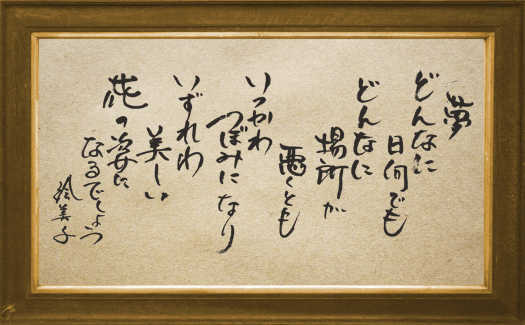 夢
どんなに
日向でも
どんなに
場所が
悪くとも
いつかわ
つぼみになり
いずれわ
美しい
花の姿に
なるでしょう